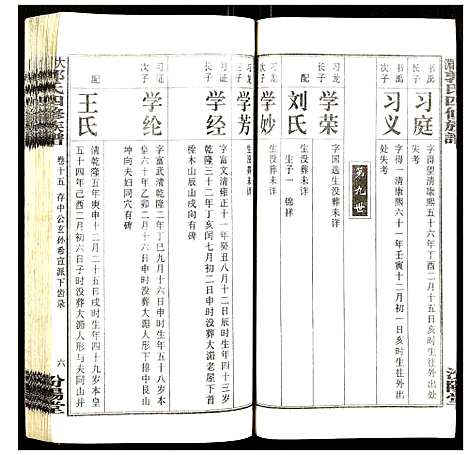 郭氏四修族譜
书禹
长子
习庭
字得望清康熙五十六年丁酉二月十五日亥时生往外出处
失考
书禹
次子
习义
字得一清康熙六十一年壬寅十二月初一日亥时生往外出
处失考
第九世
习学
长子
学荣
字国选生没葬未详
配
刘氏
生没葬未详
生子一 锦祥
习龙
次子
学妙
生没葬未详
学芳
生没葬未详
习龙
长子
学经
字富文清雍正十一年癸丑八月十二日辰时生年四十三岁
乾隆三十二年丁亥闰七月初二日时没葬大湄老屋下首
榨木山辰山戌向有碑
习定
次子
学纶
字富武清乾隆二年丁巳九月十六日时生年八十六岁本
皇六十年乙卯二月十六日申时没葬大湄人形下排中艮山
坤向夫妇同穴有碑
配
王氏
清乾隆五年庚申十二月二十五日戌时生年四十九岁本皇
五十四年己酉二月初六日子时没葬大湄人形与夫同山并
大郭氏四修族譜
卷十五 存中公玄孙希宣派下齿录
六
汾陽堂